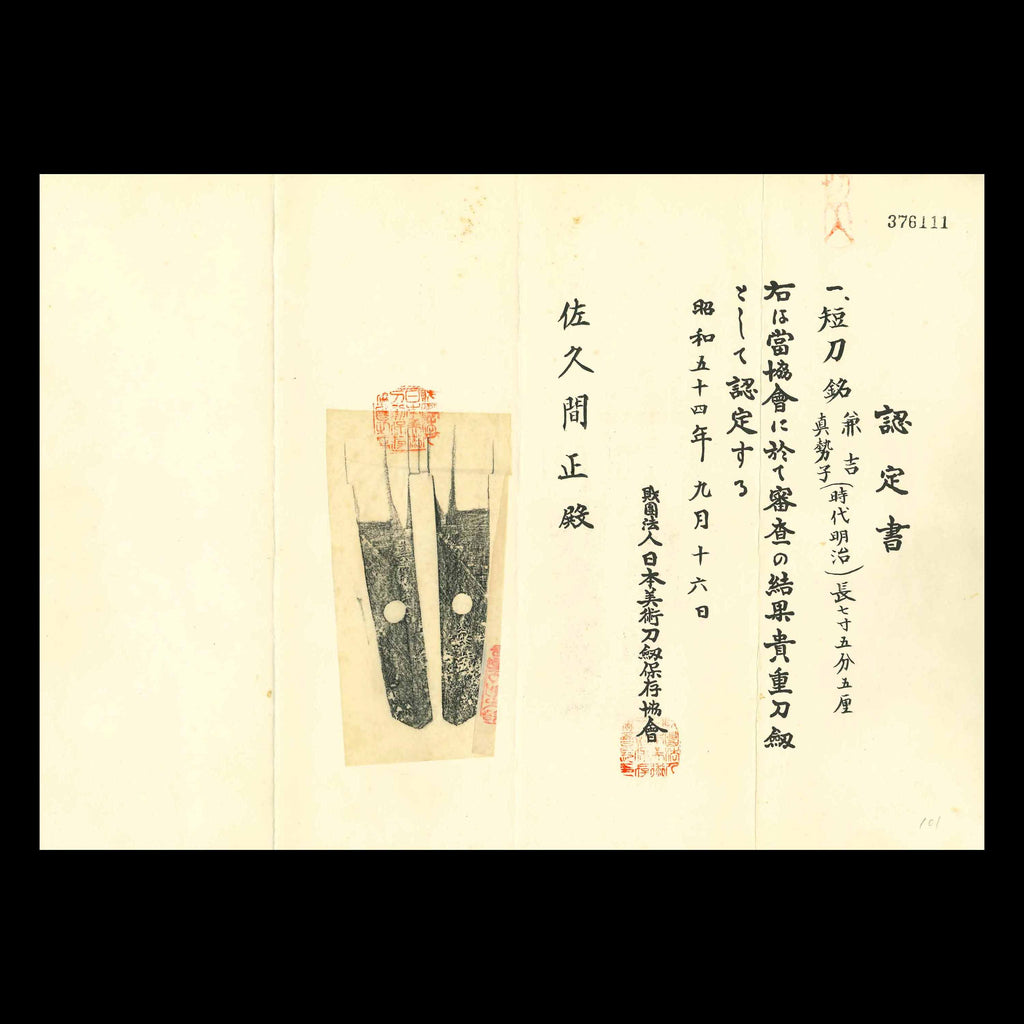 376111
認定書
一、短刀 銘 兼吉(時代明治)長七寸五分五厘
真勢子
右は當協會に於て審査の結果貴重刀劔
として認定する
昭和五十四年九月十六日
財團法人日本美術刀劔保存協會
佐久間正殿
101